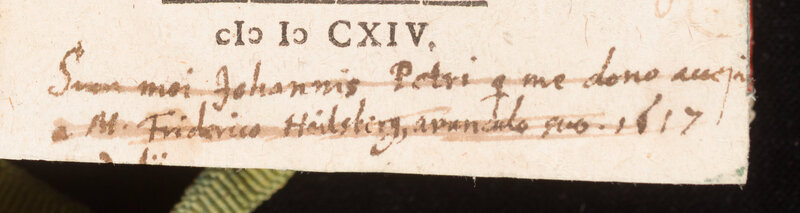 cIↃ IↃ CXIV.
Sum moi Johannis Petri q me dono accepi
a M. Friderico Heilsberg, avunculo suo. 1617